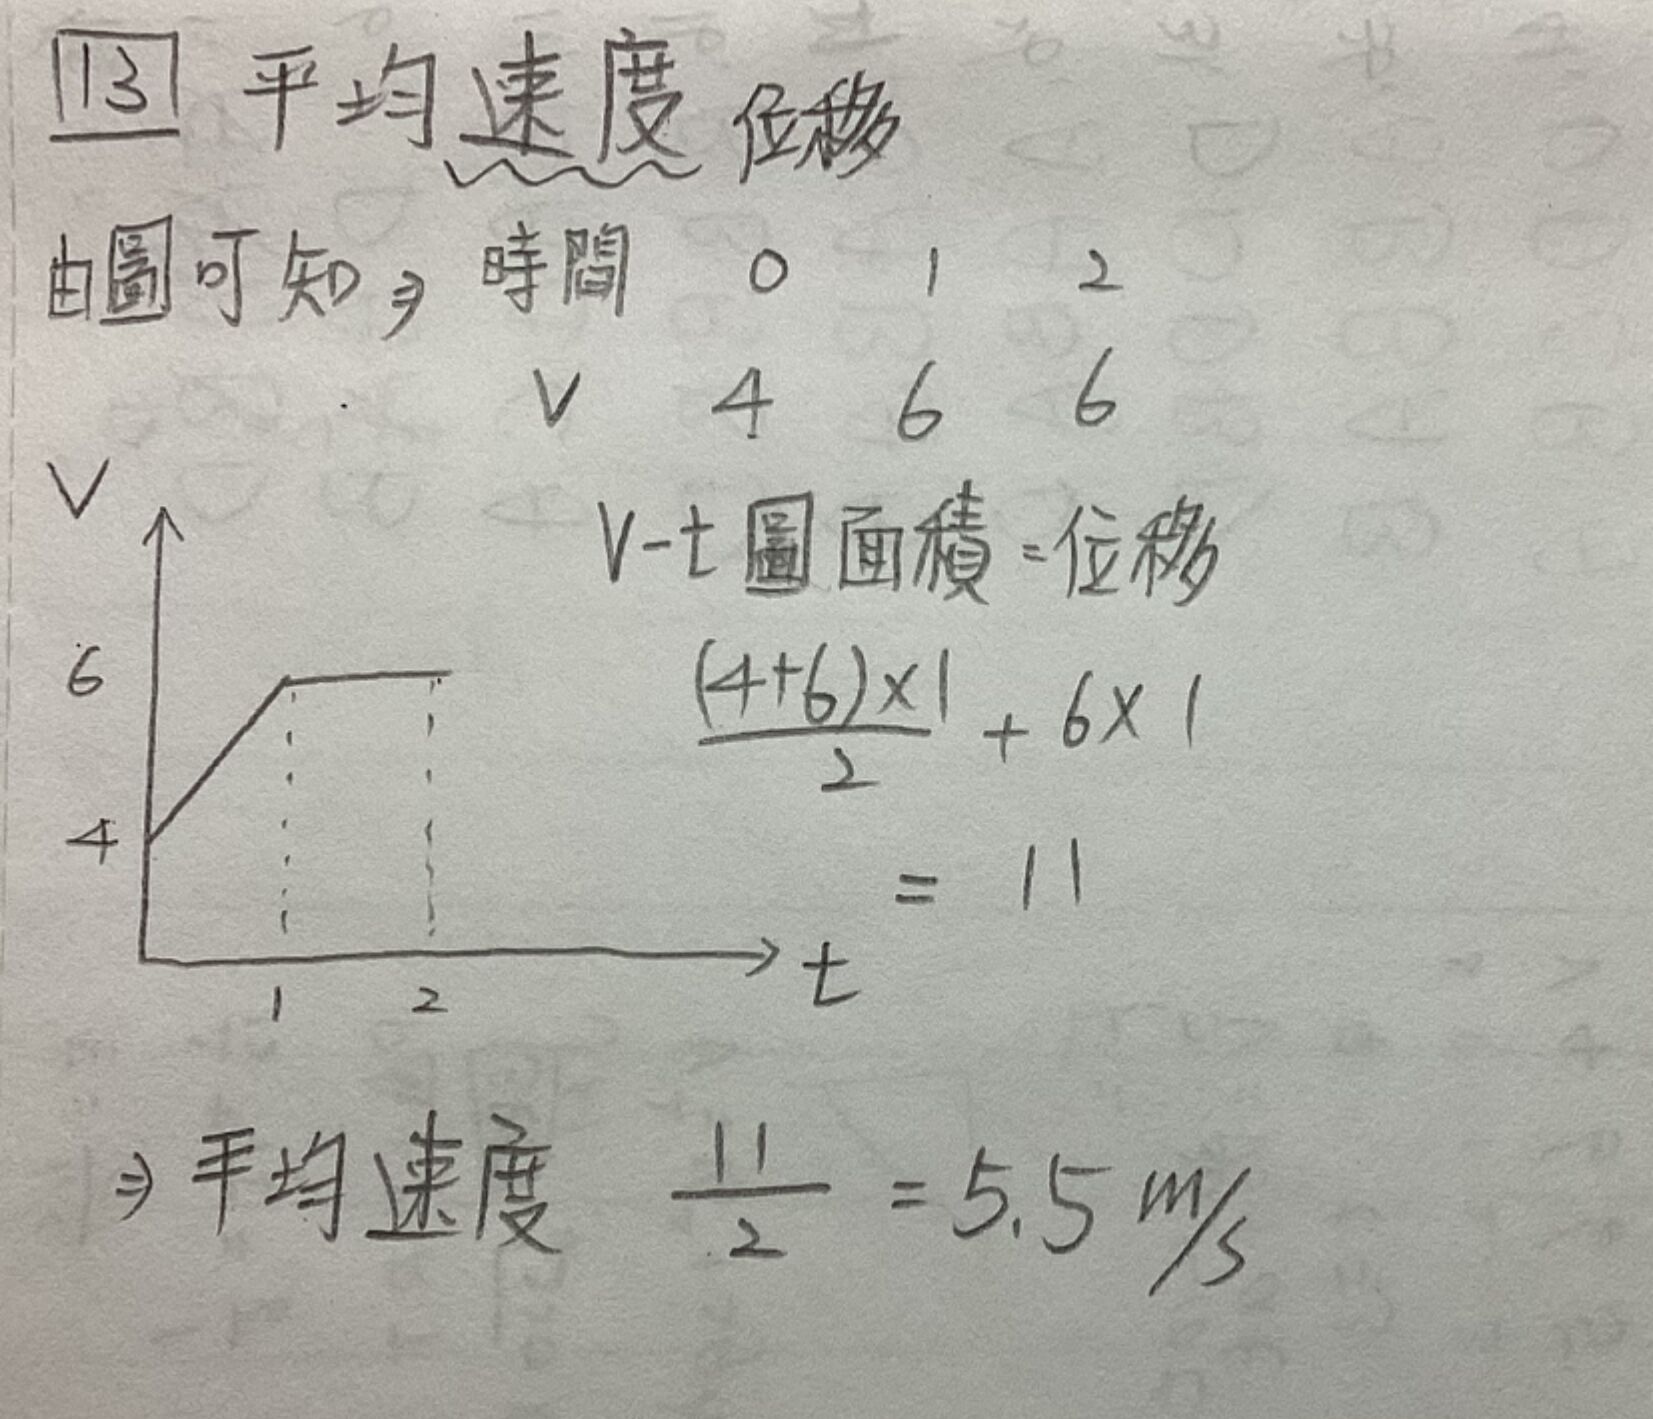 13 平均速度 位移
由圖可知⇒ 時間 0 1 2
V 4 6 6
V
V-t圖面積=位移
6
(4+6)×1/2 + 6×1
4
= 11
t
1 2
⇒平均速度 11/2 = 5.5 m/s